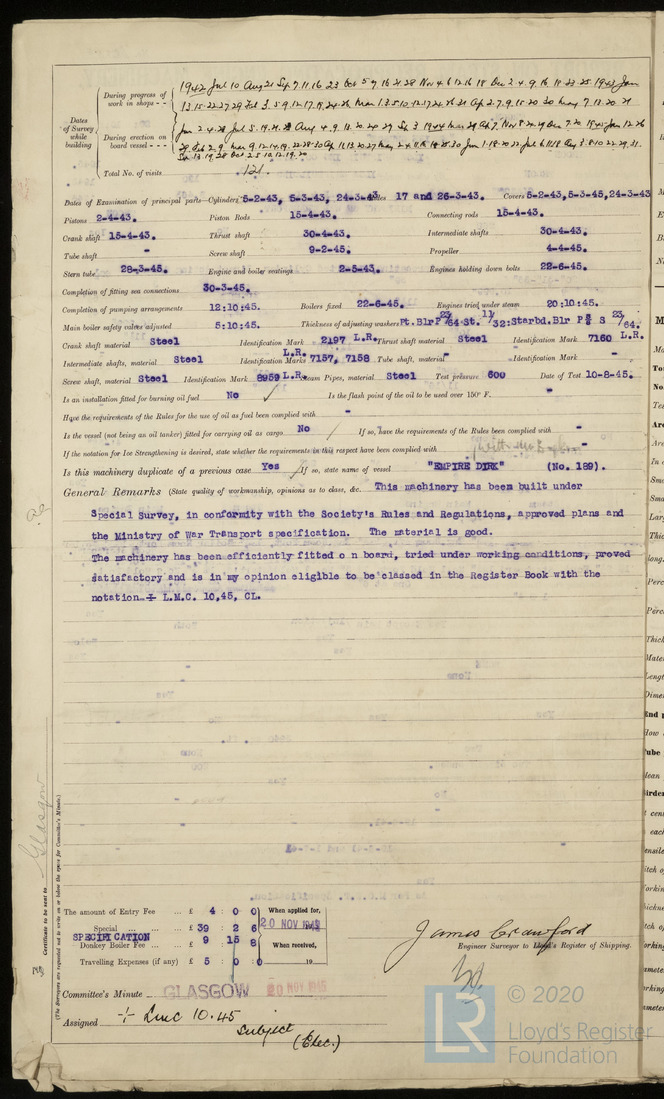 Dates of Survey while building
During progress of work in shops - -
1942 Jul 10 Aug 21 Sep 7 11 16 23 Oct 5 9 16 21 28 Nov 4 6 12 16 18 Dec 2 4 9 16 18 23 25 1943 Jan
13 15 22 27 29 Feb 3 5 9 12 17 19 24 26 Mar 1 3 5 10 12 17 24 26 31 Apr 2 7 9 15 20 30 May 7 12 20 21
During erection on board vessel - - -
Total No. of visits 121.
Dates of Examination of principal parts—Cylinders 5-2-43, 5-3-43, 24-3-43. Slides 17 and 26-3-43. Covers 5-2-43,5-3-45,24-3-43
Pistons 2-4-43. Piston Rods 15-4-43. Connecting rods 15-4-43.
Crank shaft 15-4-43. Thrust shaft 30-4-43. Intermediate shafts 30-4-43.
Tube shaft - Screw shaft 9-2-45. Propeller 4-4-45.
Stern tube 28-3-45. Engine and boiler seatings 2-5-43. Engines holding down bolts 22-6-45.
Completion of fitting sea connections 30-3-45.
Completion of pumping arrangements 12:10:45. Boilers fixed 22-6-45. Engines tried under steam 20:10:45.
Main boiler safety valves adjusted 5:10:45. Thickness of adjusting washers Pt.Blr P 23/64 St. 11/32: Starbd.Blr P 3/8 S 23/64.
Crank shaft material Steel Identification Mark 2197 L.R. Thrust shaft material Steel Identification Mark 7160 L.R.
Intermediate shafts, material Steel Identification Marks L.R. 7157, 7158 Tube shaft, material - Identification Mark -
Screw shaft, material Steel Identification Mark 8959 L.R. Steam Pipes, material Steel Test pressure 600 Date of Test 10-8-45.
Is an installation fitted for burning oil fuel No Is the flash point of the oil to be used over 150° F. -
Have the requirements of the Rules for the use of oil as fuel been complied with -
Is the vessel (not being an oil tanker) fitted for carrying oil as cargo No If so, have the requirements of the Rules been complied with -
If the notation for Ice Strengthening is desired, state whether the requirements in this respect have been complied with -
Is this machinery duplicate of a previous case Yes If so, state name of vessel "EMPIRE DIRK" (No. 189).
General Remarks (State quality of workmanship, opinions as to class, &c. This machinery has been built under
Special Survey, in conformity with the Society's Rules and Regulations, approved plans and
the Ministry of War Transport specification. The material is good.
The machinery has been efficiently fitted o n board, tried under working conditions, proved
satisfactory and is in my opinion eligible to be classed in the Register Book with the
notation + L.M.C. 10,45, CL.
Certificate to be sent to Glasgow
(The Surveyors are requested not to write on or below the space for Committee's Minute.)
The amount of Entry Fee ... £ 4 : 0 : 0 When applied for,
Special ... ... £ 39 : 2 : 6 20 NOV 1945
SPECIFICATION
Donkey Boiler Fee ... £ 9 : 15 : 8 When received,
Travelling Expenses (if any) £ 5 : 0 : 0 19
James Crawford
Engineer Surveyor to Lloyd's Register of Shipping.
Committee's Minute GLASGOW 20 NOV 1945
Assigned + LMC 10.45
Subject
(Elec.)
LR © 2020
Lloyd's Register
Foundation